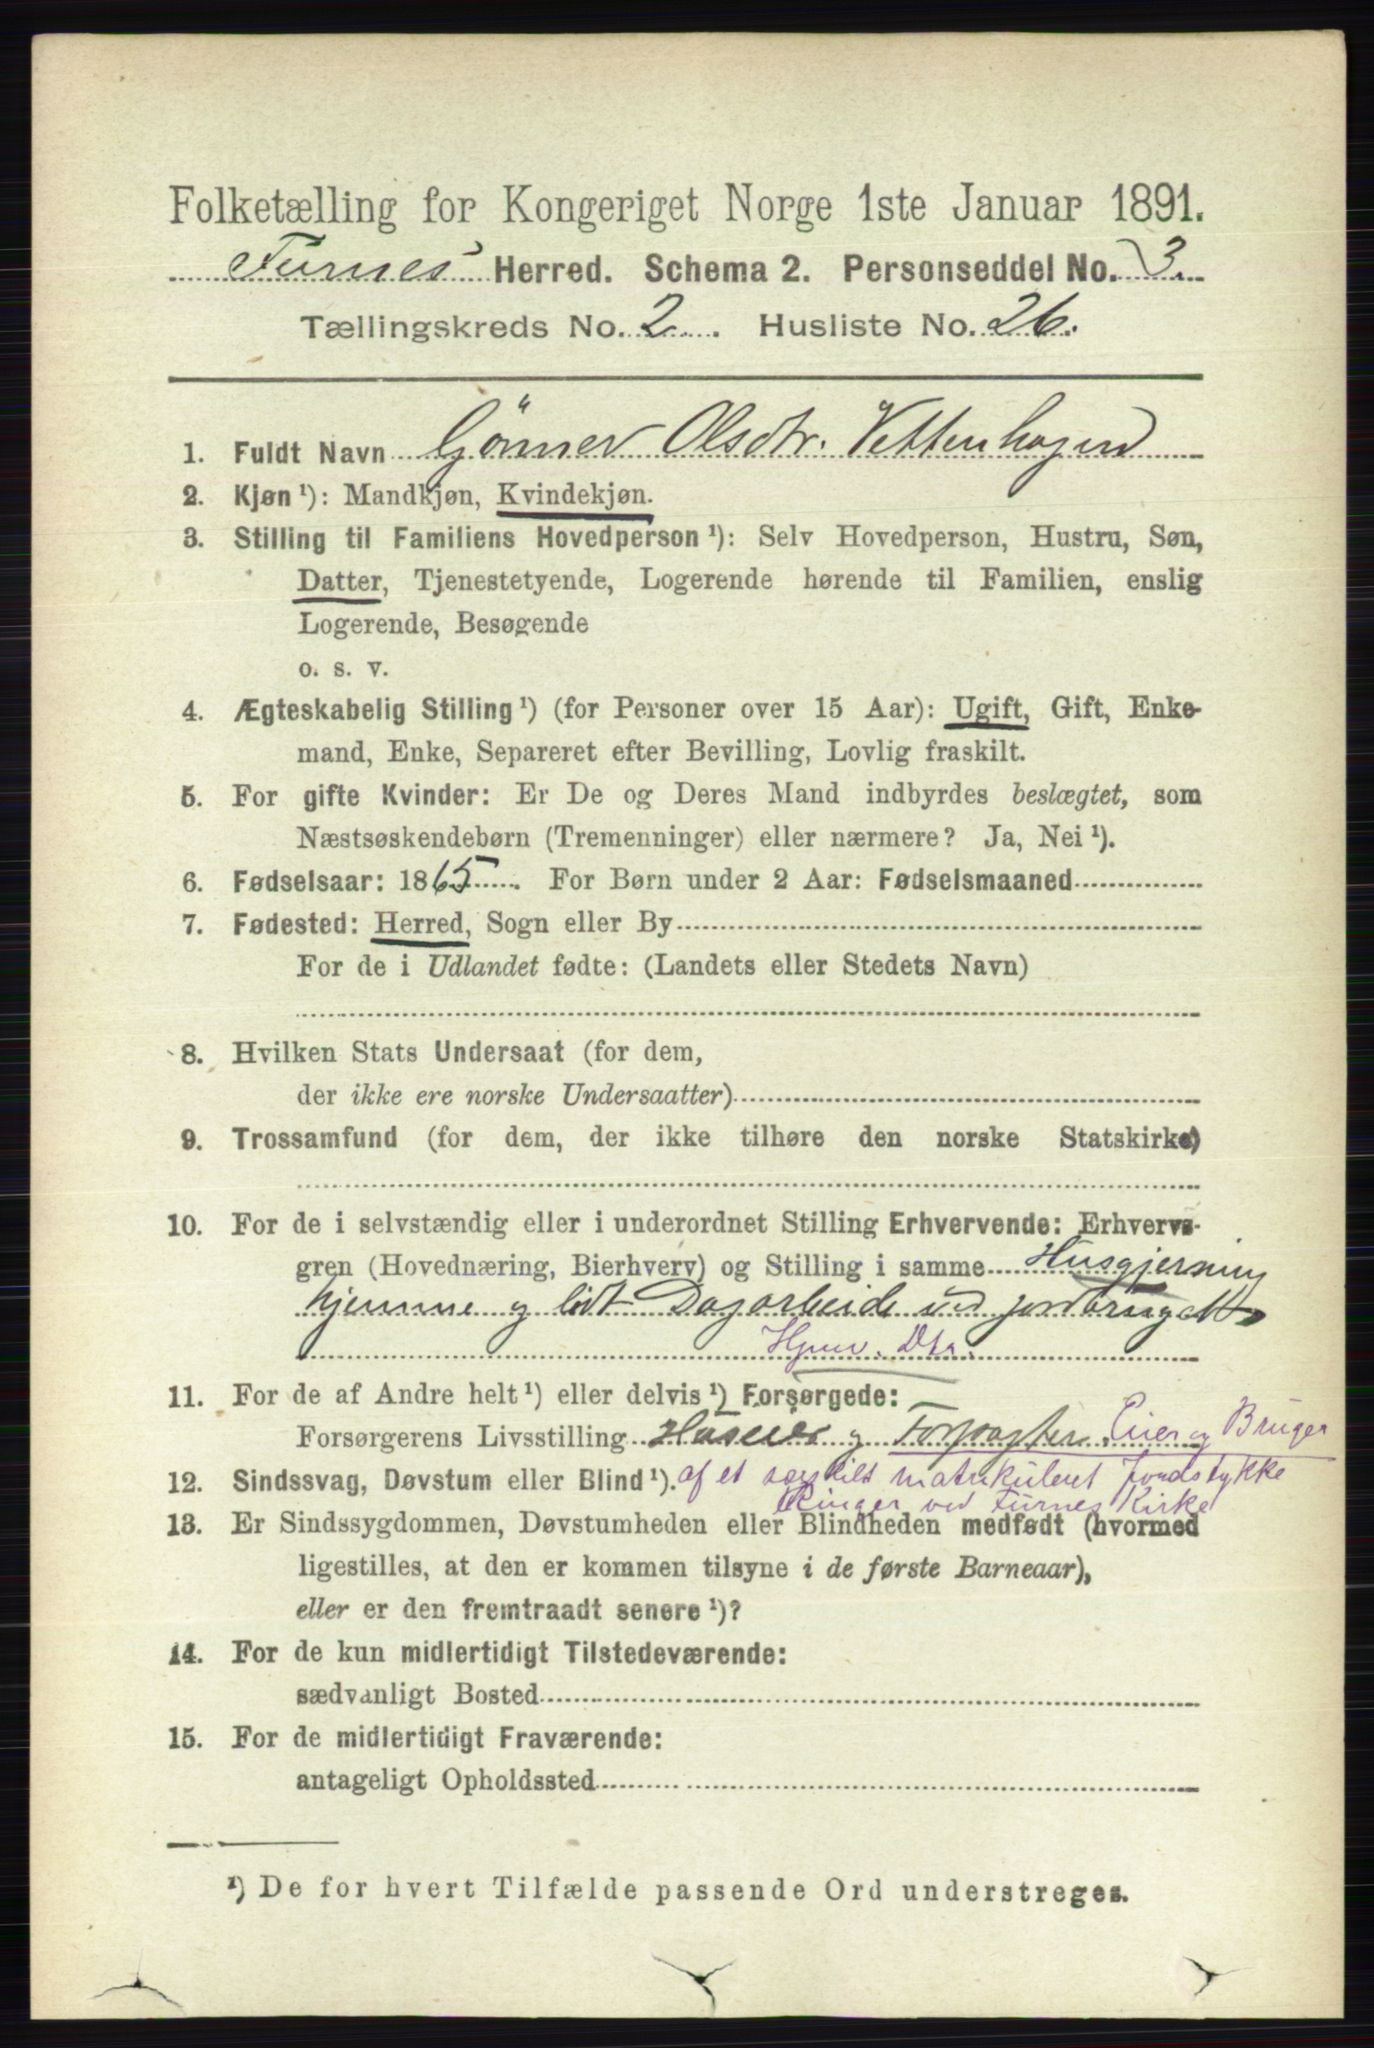 Folketælling for Kongeriget Norge 1ste Januar 1891.
Furnes Herred. Schema 2. Personseddel No. 3.
Tællingskreds No. 2. Husliste No. 26.
1. Fuldt Navn Gönner Olsdtr. Vettenhagen
2. Kjøn ¹): Mandkjøn, Kvindekjøn.
3. Stilling til Familiens Hovedperson ¹): Selv Hovedperson, Hustru, Søn,
Datter, Tjenestetyende, Logerende hørende til Familien, enslig
Logerende, Besøgende
o. s. v.
4. Ægteskabelig Stilling ¹) (for Personer over 15 Aar): Ugift, Gift, Enke-
mand, Enke, Separeret efter Bevilling, Lovlig fraskilt.
5. For gifte Kvinder: Er De og Deres Mand indbyrdes beslægtet, som
Næstsøskendebørn (Tremenninger) eller nærmere? Ja, Nei ¹).
6. Fødselsaar: 1865. For Børn under 2 Aar: Fødselsmaaned
7. Fødested: Herred, Sogn eller By
For de i Udlandet fødte: (Landets eller Stedets Navn)
8. Hvilken Stats Undersaat (for dem,
der ikke ere norske Undersaatter)
9. Trossamfund (for dem, der ikke tilhøre den norske Statskirke)
10. For de i selvstændig eller i underordnet Stilling Erhvervende: Erhvervs-
gren (Hovednæring, Bierhverv) og Stilling i samme Husgjerning
hjemme og lidt Dagarbeide ved jordbruget
Hjmv. Dtr.
11. For de af Andre helt ¹) eller delvis ¹) Forsørgede:
Forsørgerens Livsstilling Huseier og Forpagter. Eier og Bruger
12. Sindssvag, Døvstum eller Blind ¹). af et særskilt matrikuleret Jordstykke
Ringer ved Furnes Kirke
13. Er Sindssygdommen, Døvstumheden eller Blindheden medfødt (hvormed
ligestilles, at den er kommen tilsyne i de første Barneaar),
eller er den fremtraadt senere ¹)?
14. For de kun midlertidigt Tilstedeværende:
sædvanligt Bosted
15. For de midlertidigt Fraværende:
antageligt Opholdssted
¹) De for hvert Tilfælde passende Ord understreges.